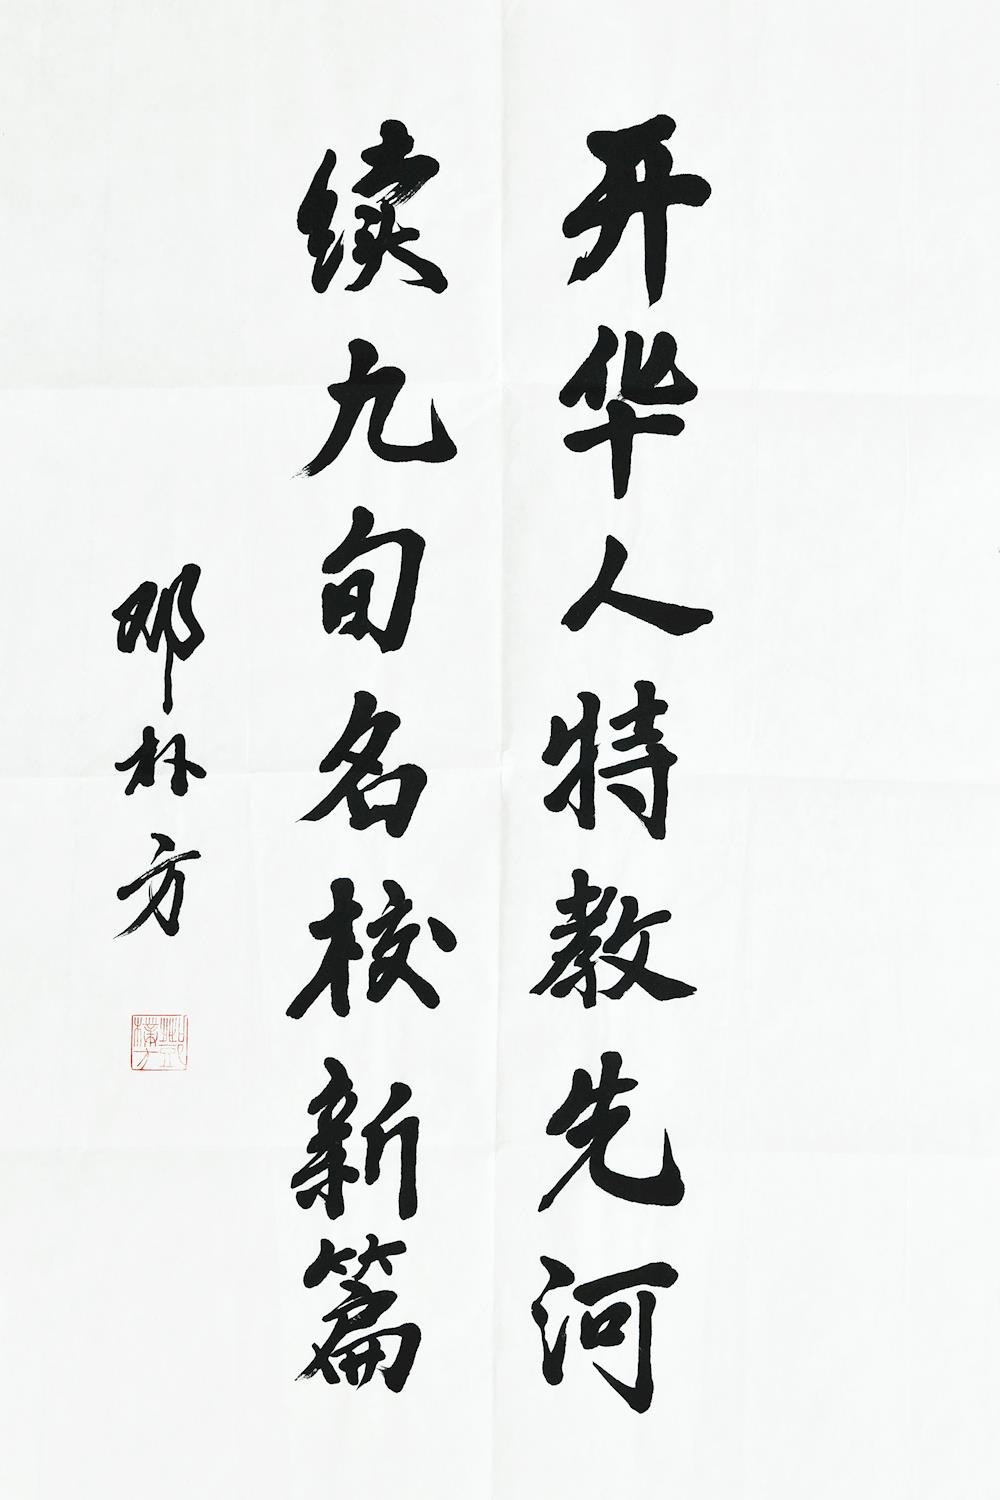 开华人特教先河
续九旬名校新篇
邓朴方
鄧樸方